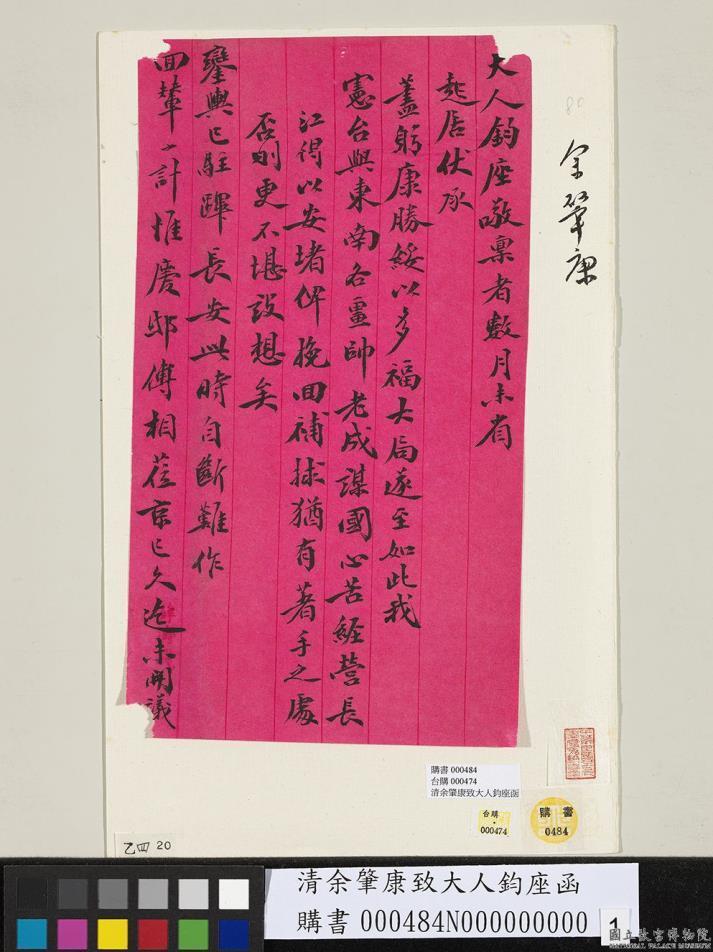 大人鈞座敬稟者數月未省
起居伏承
藎躬康勝綏以多福大局遂至如此我
憲台與東南各畺帥老成謀國心苦經營長
江得以安堵俾挽回補捄猶有著手之處
否則更不堪設想矣
鑾輿已駐蹕長安此時自斷難作
回輦之計惟慶邸傅相蒞京已久迄未開議
余肇康
80
購書 000484
台購 000474
清余肇康致大人鈞座函
台購
000474
購書
0484
乙四 20
清余肇康致大人鈞座函
購書 000484N000000000
1
國立故宮博物院
NATIONAL PALACE MUSEUM